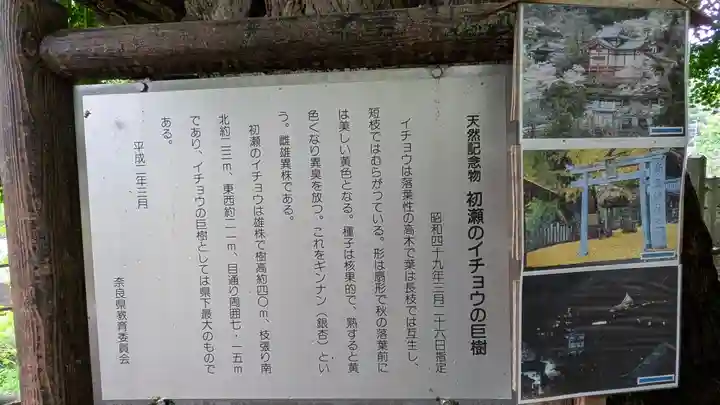 天然記念物 初瀬のイチョウの巨樹
昭和四十九年三月二十六日指定
イチョウは落葉性の高木で葉は長枝では互生し、
短枝ではむらがつている。形は扇形で秋の落葉前に
は美しい黄色となる。種子は核果的で、熟すると黄
色くなり異臭を放つ。これをギンナン（銀杏）とい
う。雌雄異株である。
初瀬のイチョウは雄株で樹高約四〇m、枝張り南
北約二三m、東西約二二m、目通り周囲七・一五m
であり、イチョウの巨樹としては県下最大のもので
ある。
平成二年三月
奈良県教育委員会